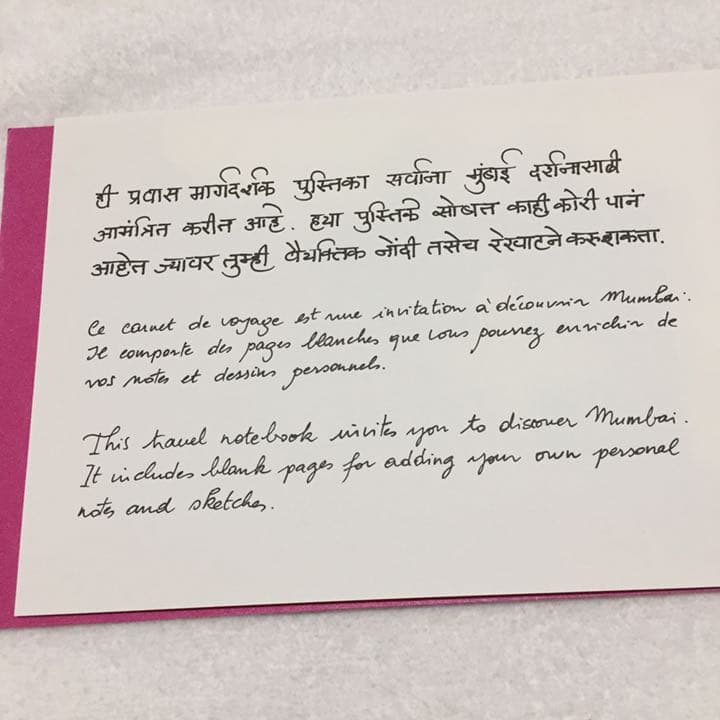 ही प्रवास मार्गदर्शक पुस्तिका सर्वाना मुंबई दर्शनासाठी
आमंत्रित करीत आहे. हया पुस्तिके सोबत काही कोरी पानं
आहेत ज्यावर तुम्ही वैयक्तिक नोंदी तसेच रेखाटने करु शकता.
Ce carnet de voyage est une invitation à découvrir Mumbai.
Il comporte des pages blanches que vous pourrez enrichir de
vos notes et dessins personnels.
This travel notebook invites you to discover Mumbai.
It includes blank pages for adding your own personal
notes and sketches.